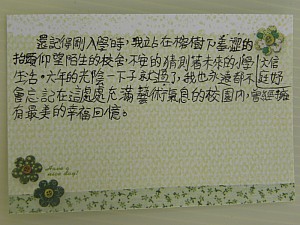 還記得剛入學時，我站在榕樹下羞澀的
抬頭仰望陌生的校舍，不安的猜測著未來的小學生
生活。六年的光陰一下子就過了，我也永遠都不
會忘記在這處處充滿藝術氣息的校園內，曾經擁
有最美的幸福回憶。
Have a
nice day!